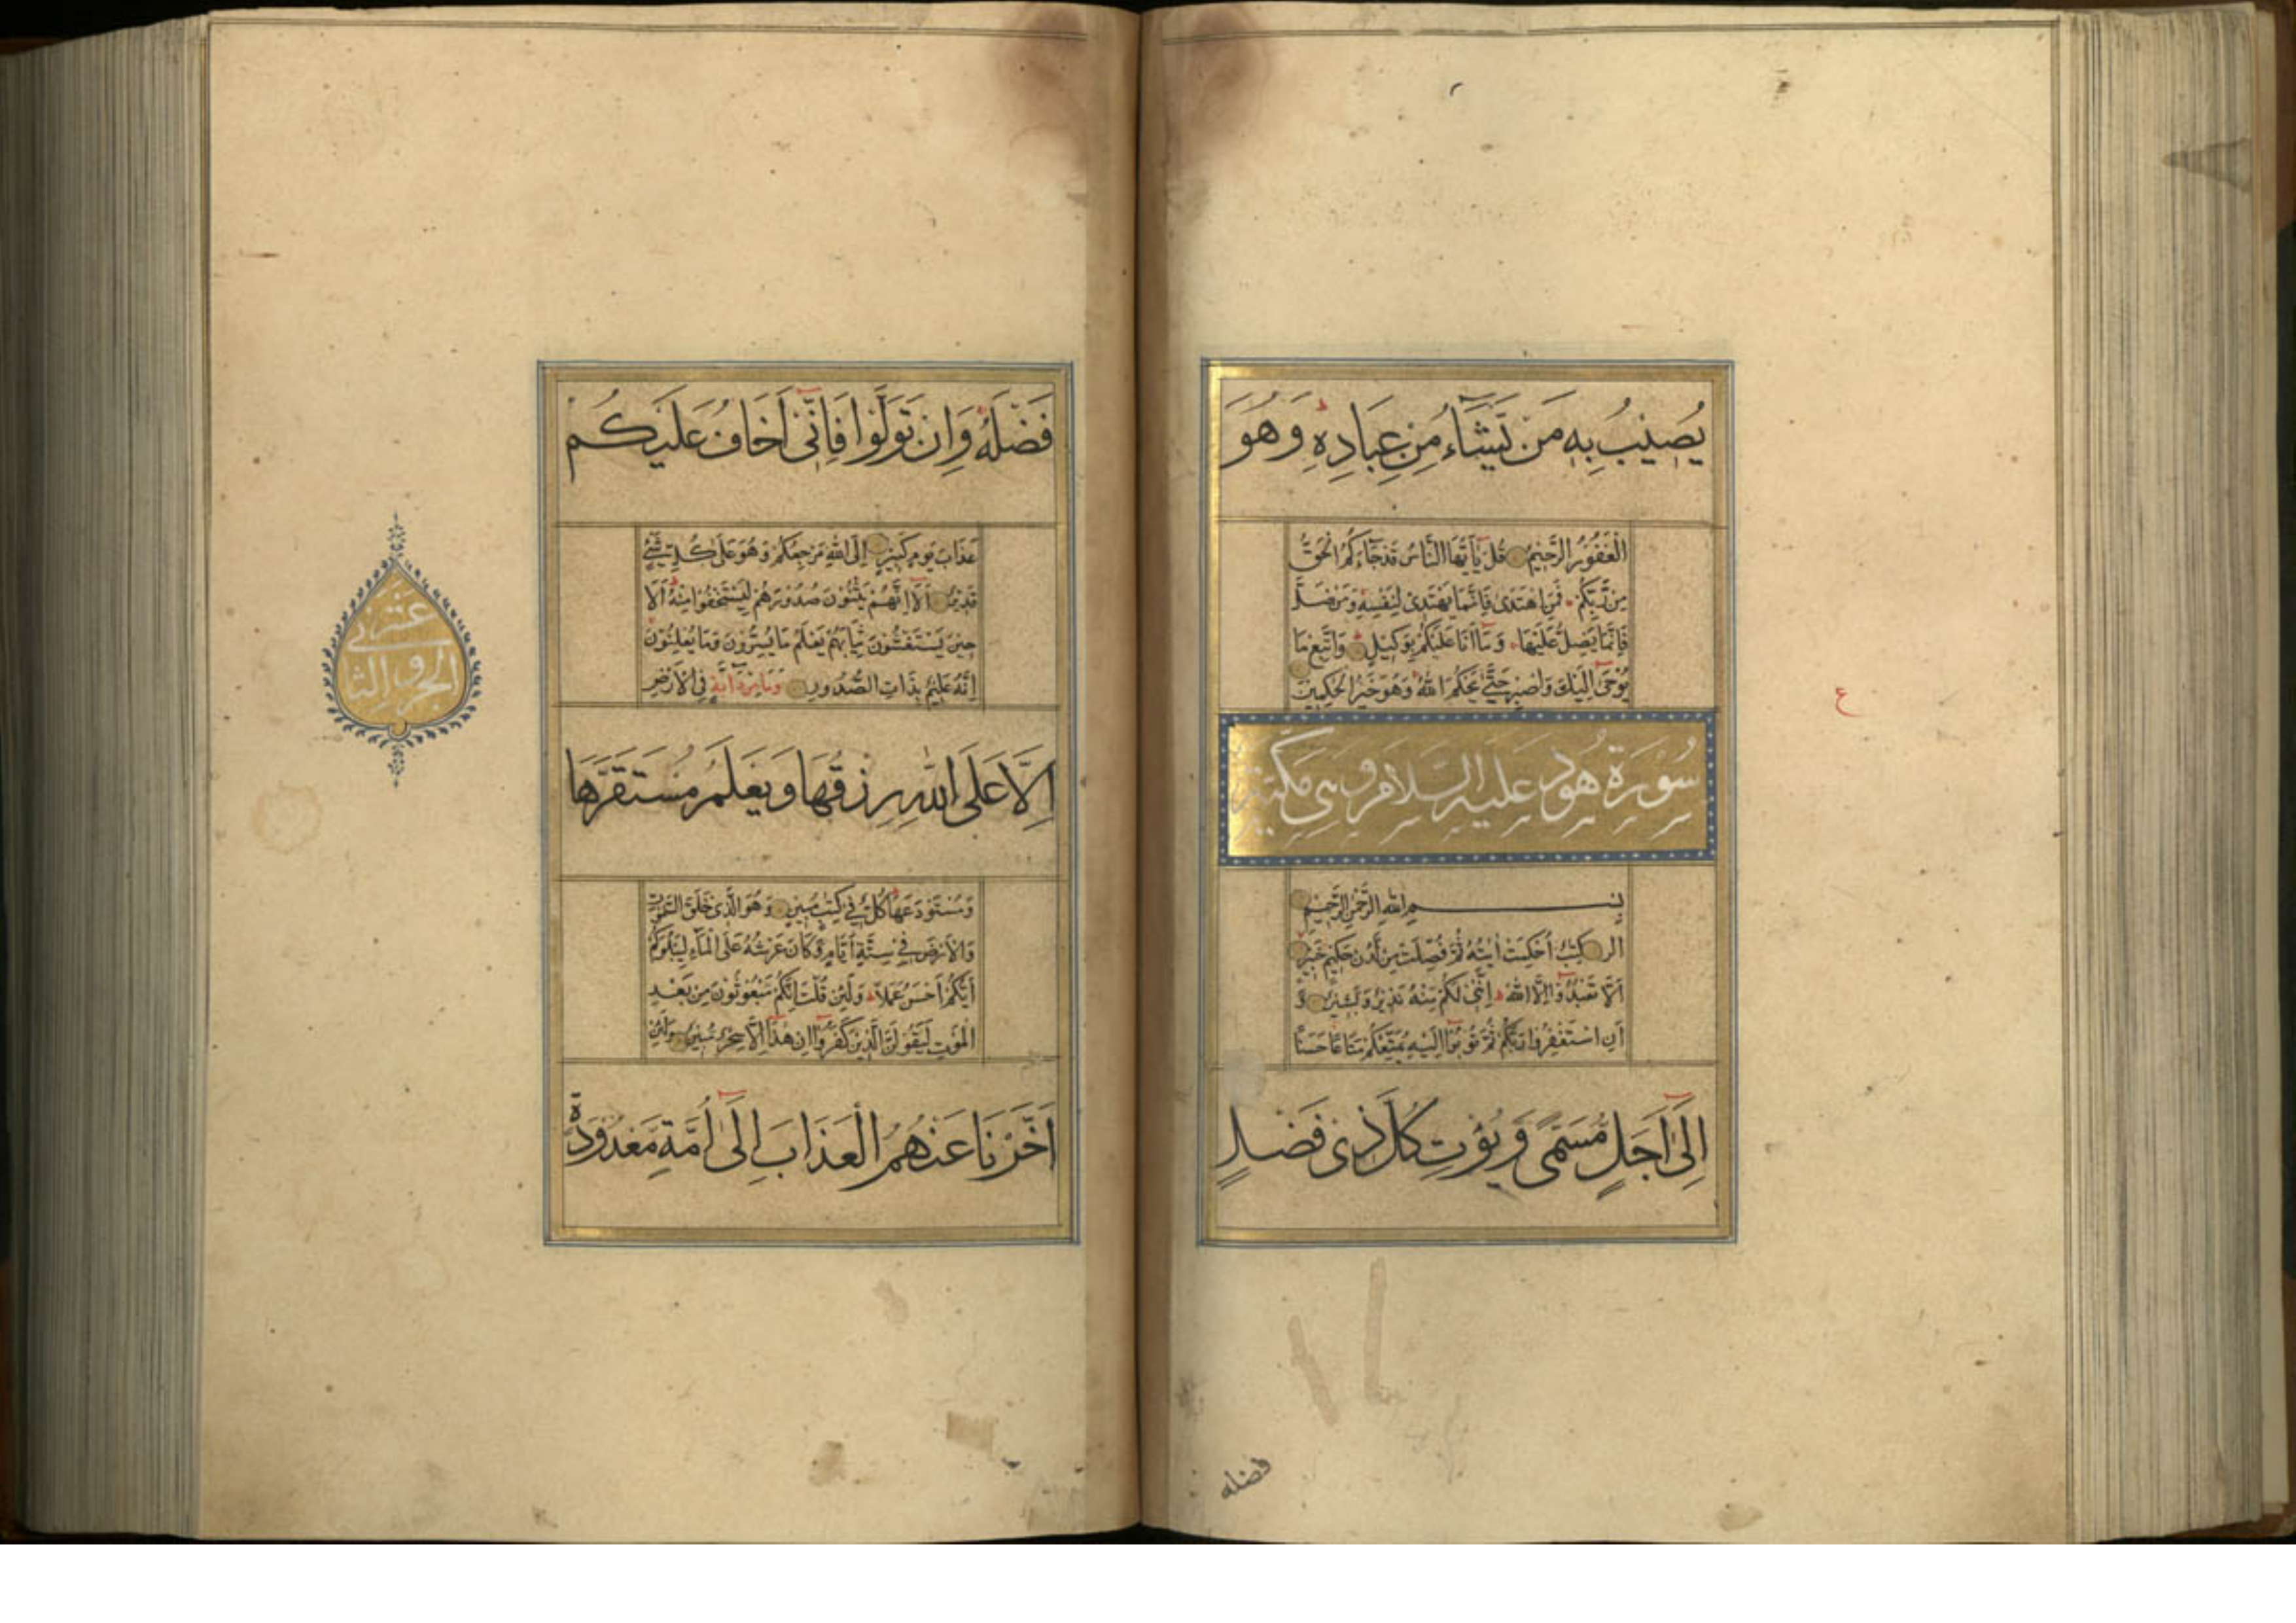 يُصِيبُ بِهِ مَن يَشَاءُ مِن عِبَادِهِ وَهُوَ
الْغَفُورُ الرَّحِيمُ قُل يَا أَيُّهَا النَّاسُ قَد جَاءَكُمُ الْحَقُّ
مِن رَّبِّكُم فَمَنِ اهْتَدَى فَإِنَّمَا يَهْتَدِى لِنَفْسِهِ وَمَن ضَلَّ
فَإِنَّمَا يَضِلُّ عَلَيْهَا وَمَا أَنَا عَلَيْكُم بِوَكِيلٍ وَاتَّبِعْ مَا
يُوحَى إِلَيْكَ وَاصْبِرْ حَتَّى يَحْكُمَ اللهُ وَهُوَ خَيْرُ الْحٰكِمِينَ
سُورَة هُود عَلَيهِ السَّلَام وَهِيَ مَكِّيَة
بِسْمِ اللهِ الرَّحْمٰنِ الرَّحِيمِ
الر كِتٰبٌ أُحْكِمَتْ اٰيٰتُهُ ثُمَّ فُصِّلَتْ مِن لَّدُنْ حَكِيمٍ خَبِيرٍ
أَلَّا تَعْبُدُوا إِلَّا اللهَ إِنَّنِى لَكُم مِّنْهُ نَذِيرٌ وَبَشِيرٌ وَ
أَنِ اسْتَغْفِرُوا رَبَّكُم ثُمَّ تُوبُوا إِلَيْهِ يُمَتِّعْكُم مَّتَاعًا حَسَنًا
إِلَى أَجَلٍ مُّسَمًّى وَيُؤْتِ كُلَّ ذِى فَضْلٍ
فضله
ع
فَضْلَهُ وَإِن تَوَلَّوْا فَإِنِّى أَخَافُ عَلَيْكُم
عَذَابَ يَوْمٍ كَبِيرٍ إِلَى اللهِ مَرْجِعُكُم وَهُوَ عَلَى كُلِّ شَىْءٍ
قَدِيرٌ أَلَا إِنَّهُم يَثْنُونَ صُدُورَهُم لِيَسْتَخْفُوا مِنْهُ أَلَا
حِينَ يَسْتَغْشُونَ ثِيَابَهُم يَعْلَمُ مَا يُسِرُّونَ وَمَا يُعْلِنُونَ
إِنَّهُ عَلِيمٌ بِذَاتِ الصُّدُورِ وَمَا مِن دَابَّةٍ فِى الْأَرْضِ
إِلَّا عَلَى اللهِ رِزْقُهَا وَيَعْلَمُ مُسْتَقَرَّهَا
وَمُسْتَوْدَعَهَا كُلٌّ فِى كِتٰبٍ مُّبِينٍ وَهُوَ الَّذِى خَلَقَ السَّمٰوٰتِ
وَالْأَرْضَ فِى سِتَّةِ أَيَّامٍ وَكَانَ عَرْشُهُ عَلَى الْمَاءِ لِيَبْلُوَكُم
أَيُّكُم أَحْسَنُ عَمَلًا وَلَئِن قُلْتَ إِنَّكُم مَّبْعُوثُونَ مِن بَعْدِ
الْمَوْتِ لَيَقُولَنَّ الَّذِينَ كَفَرُوا إِنْ هٰذَا إِلَّا سِحْرٌ مُّبِينٌ وَلَئِن
أَخَّرْنَا عَنْهُمُ الْعَذَابَ إِلَى أُمَّةٍ مَّعْدُودَةٍ
الجزو الثانى عشر